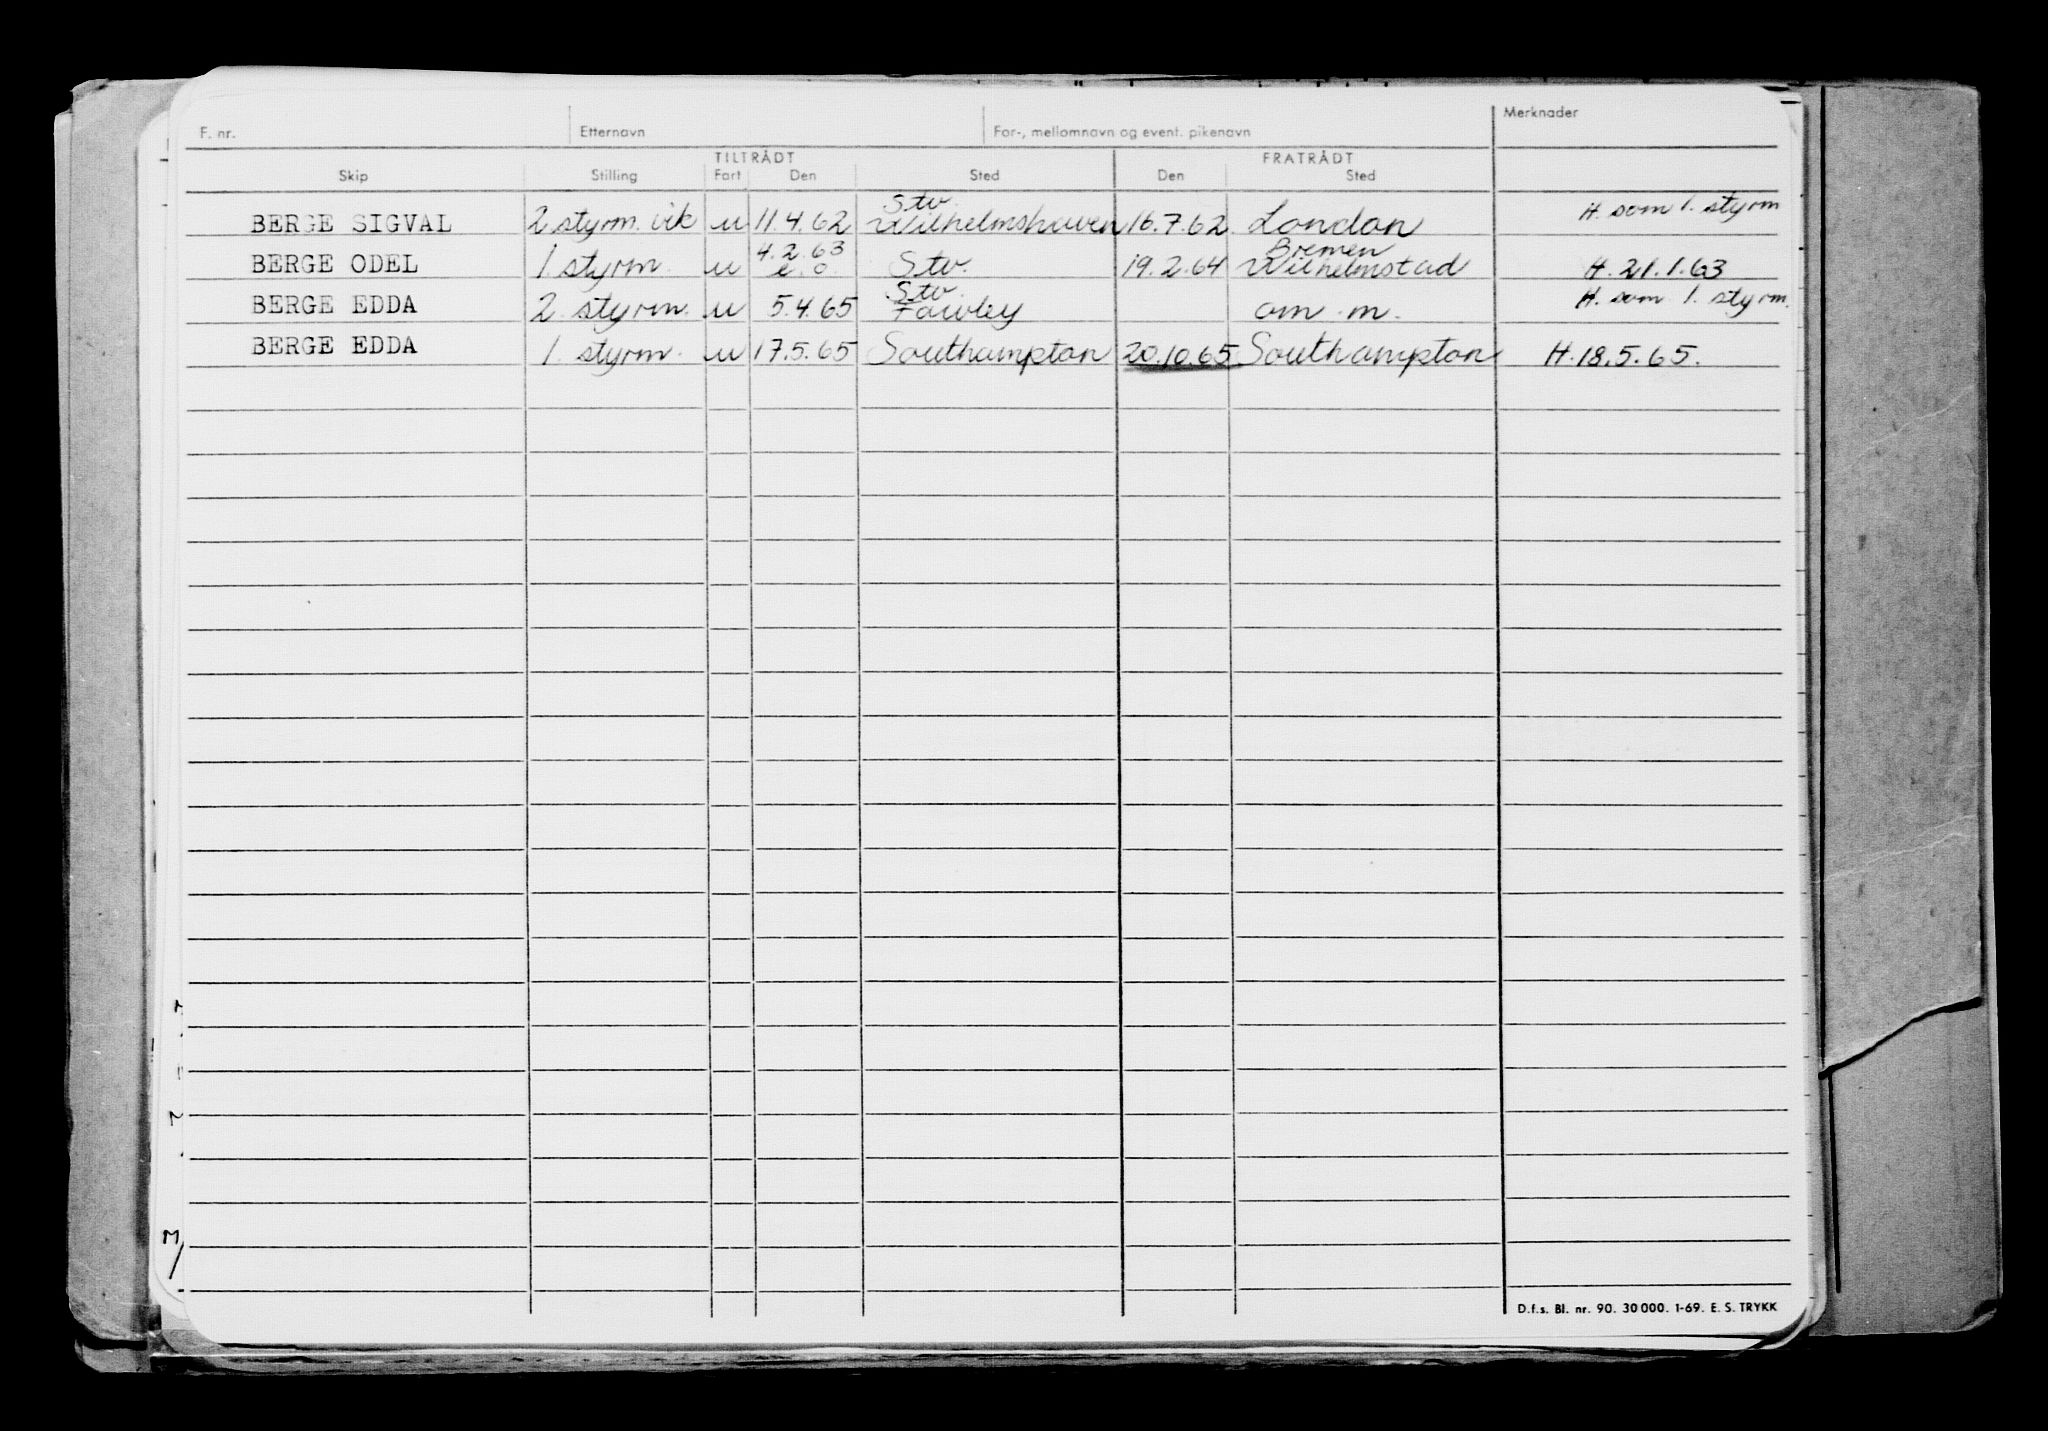 F. nr. Etternavn For-, mellomnavn og event. pikenavn Merknader
TILTRÅDT FRATRÅDT
Skip Stilling Fart Den Sted Den Sted
BERGE SIGVAL 2 styrm. vik u 11.4.62 Stv. Wilhelmshaven 16.7.62 London H. som 1. styrm
BERGE ODEL 1. styrm. u 4.2.63 e.o. Stv. 19.2.64 Bremen Wilhelmstad H. 21.1.63
BERGE EDDA 2. styrm. u 5.4.65 Stv. Fawley am. m. H. som 1. styrm.
BERGE EDDA 1. styrm. u 17.5.65 Southampton 20.10.65 Southampton H. 18.5.65.
D.f.s. Bl. nr. 90. 30 000. 1-69. E. S. TRYKK